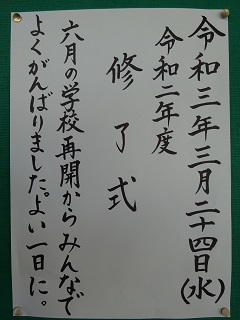 令和三年三月二十四日(水)
令和二年度
修了式
六月の学校再開からみんなで
よくがんばりました。よい一日に。